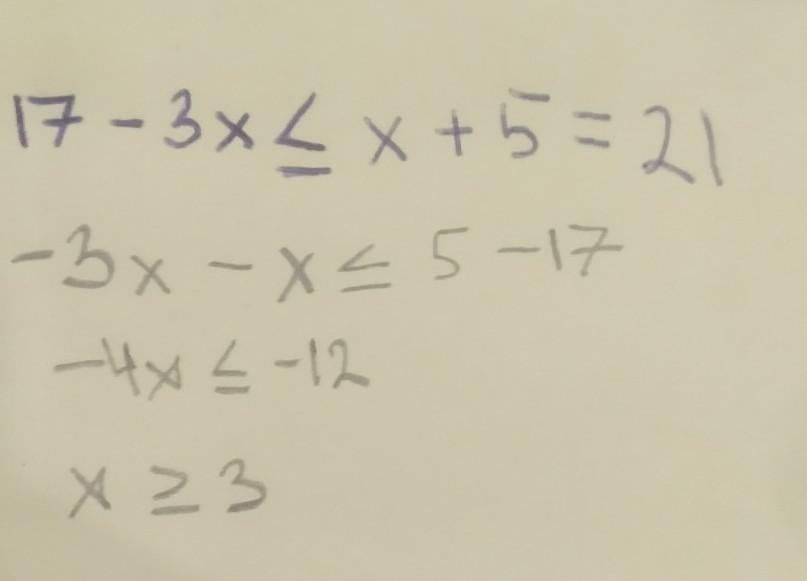 17 - 3x ≤ x + 5 = 21
-3x - x ≤ 5 - 17
-4x ≤ -12
x ≥ 3